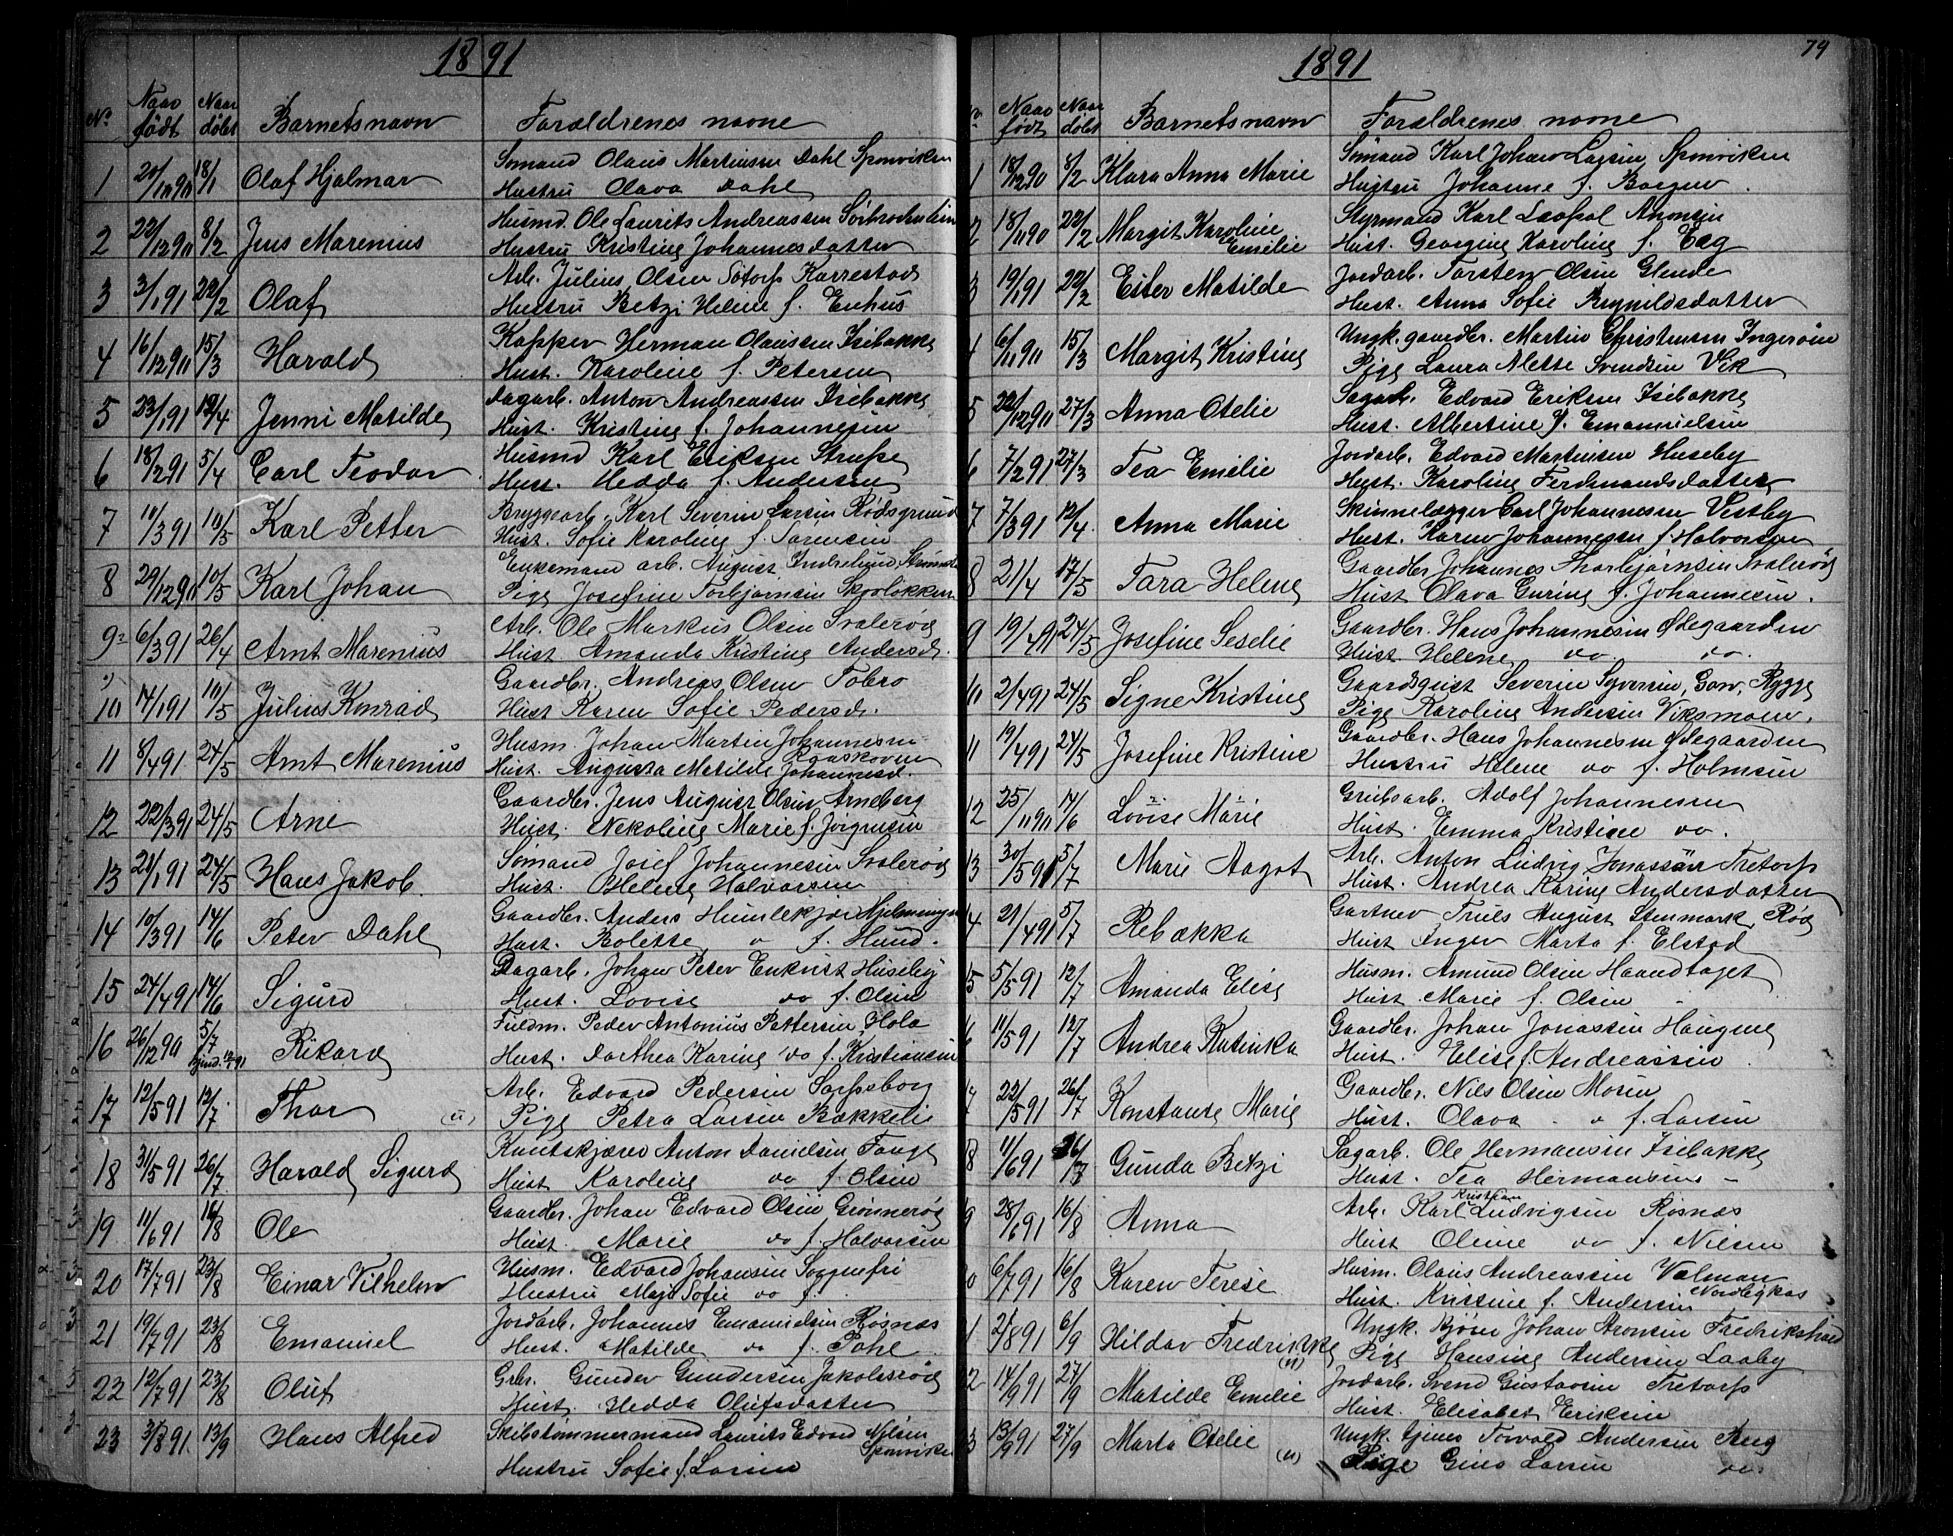 1891
No Naar født Naar døbt Barnetsnavn Forældrenes navne
1 18/1 Olaf Hjalmar Sømand Olaus Martinsen Dahl Sponviken
Hustru Olava Dahl
2 22/12 90 8/2 Jens Marenius Husmd. Ole Laurits Andreassen
Hustru Kristine Johannesdatter
3 3/1 91 22/2 Olaf Arb. Julius Olsen Karrestad
Hustru Betzi Helene f. Enhus
4 16/12 90 15/3 Harald Herman Olaussen Isebakke
Hust. Karoline f. Petersen
5 23/1 91 12/4 Jenni Matilde Dagarb. Anton Andreassen Isebakke
Hust. Kristine f. Johannesen
6 18/2 91 5/4 Carl Teodor Husmd Karl Eriksen
Hust. Hedda f. Andersen
7 11/3 91 10/5 Karl Petter Bryggearb. Karl Severin Larsen Rødsgrund
Hust. Sofie Karoline f. Sørensen
8 29/12 90 10/5 Karl Johan Enkemand arb. August
Pige Josefine Torbjørnsen Skovløkken
9 6/3 91 26/4 Arnt Marenius Arb. Ole Markus Olsen Svalerød
Hust. Amanda Kristine Andersd.
10 14/1 91 10/5 Julius Konrad Gaardbr. Andreas Olsen Tobro
Hust Karen Sofie Pedersd.
11 8/4 91 24/5 Arnt Marenius Husm. Johan Martin Johannesen
Hust. Augusta Matilde Johannesd.
12 22/3 91 24/5 Arne Gaardbr. Jens August Olsen Arneberg
Hust. Nikoline Marie f. Jørgensen
13 21/1 91 24/5 Hans Jakob. Sømand Josef Johannesen Svalerød
Hust. Helene Halvorsen
14 10/3 91 14/6 Peter Dahl Gaardbr. Anders Humlekjær
Hust. Bolette f. Hund.
15 24/4 91 14/6 Sigurd Dagarb. Johan Peter Enkvist Huseby
Hust. Lovise do f. Olsen
16 26/12 90 5/7 Rikard Fuldm. Peder Antonius Pettersen Hola
Hust. Dorthea Karine do f. Kristiansen
17 12/5 91 12/7 Thor (u) Arb. Edvard Pedersen Sarpsborg
Pige Petra Larsen Bakkeli
18 31/5 91 26/7 Harald Sigurd Anton Danielsen
Hust Karoline do f. Olsen
19 11/6 91 16/8 Ole Gaardbr. Johan Edvard Olsen Grønnerød
Hust. Marie do f. Halvorsen
20 17/7 91 23/8 Einar Vilhelm Husm. Edvard Johansen Sorgenfri
Hustru Maja Sofie do f.
21 19/7 91 23/8 Emanuel Jordarb. Johannes Emanuelsen Røsnæs
Hust. Matilde do f. Pohl
22 12/7 91 23/8 Oluf Grbr. Gunder Gundersen Jakobsrød
Hust. Hedda Olufsdatter
23 3/8 91 13/9 Hans Alfred Skibstømmermand Laurits Edvard Nilsen
Sponviken
Hustru Sofie f. Larsen
79
1891
Naar født Naar døbt Barnetsnavn Forældrenes navne
1 18/12 90 8/2 Klara Anna Marie Sømand Karl Johan Larsen, Sponviken
Hustru Johanne f. Borgen
2 18/11 90 22/2 Margit Karoline Emilie Styrmand Karl Leopol Aronsen
Hust. Georgine Karoline f. Eeg
3 19/1 91 22/2 Ester Matilde Jordarb. Torsten Olsen Glende
Hust. Anna Sofie Brynildsdatter
4 6/11 90 15/3 Margit Kristine Ungk. gaardbr. Martin Christensen Ingerøen
Pige Laura Alette Svendsen Vik
5 22/12 90 27/3 Anna Otelie Sagarb. Edvard Eriksen Isebakke
Hust. Albertine f. Emanuelsen
6 7/2 91 27/3 Tea Emilie Jordarb. Edvard Martinsen Huseby
Hust. Karoline Ferdinandsdatter
7 7/3 91 12/4 Anna Marie Skinnelægger Carl Johannesen Vestby
Hust. Karen Johannesen f. Halvorsen
8 21/4 17/5 Tara Helene Gaardbr. Johannes Thorbjørnsen Svalerød
Hust Olava Gurine f. Johannesen.
9 19/4 91 24/5 Josefine Seselie Gaardbr. Hans Johannesen Ødegaarden
Hust. Helene do do.
10 2/4 91 24/5 Signe Kristine Severin Syversen, Rygge
Pige Karoline Andersen Viksmoen.
11 19/4 91 24/5 Josefine Kristine Gaardbr. Hans Johannesen Ødegaarden
Hustru Helene do f. Holmsen
12 25/11 90 14/6 Lovise Marie Grubearb. Adolf Johannesen
Hust. Emma Kristine do.
13 30/5 91 5/7 Marie Aagot Arb. Anton Ludvig Jonassen Tretorp
Hust. Andrea Karine Andersdatter
14 21/4 91 5/7 Rebækka Gartner Truls August Stenmark, Rød
Hust Inger Marta f. Elstad
15 5/5 91 12/7 Amanda Elise Husm. Amund Olsen Haandtaget
Hust. Marie f. Olsen
11/5 91 12/7 Andrea Katinka Gaardbr. Johan Jonassen Haugene
Hust. Elise f. Andreassen
7 22/5 91 26/7 Konstanse Marie Gaardbr. Nils Olsen Mosen
Hust. Olava f. Larsen
8 11/6 91 26/7 Gunda Betzi Sagarb. Ole Hermansen Isebakke
Hust. Tea Hermansens
9 28/6 91 16/8 Anna Arb. Karl Kristian Ludvigsen Røsnæs
Hust Oline do f. Nilsen
0 6/7 91 16/8 Karen Terese Husm. Olaus Andreassen
Hust. Kristine f. Andersen
1 2/8 91 6/9 Hildar Fredrikke (u) Ungk. Johan Aronsen Fredrikshald
Pige Hansine Andersen Laaby
2 14/9 91 27/9 Matilde Emilie Jordarb. Svend Gustavsen Tretorp
Hust. Elisabet Eriksen
3 13/9 91 27/9 Marta Otelie (u) Ungk. tjener Torvald Andersen Berg
Pige Gina Larsen do